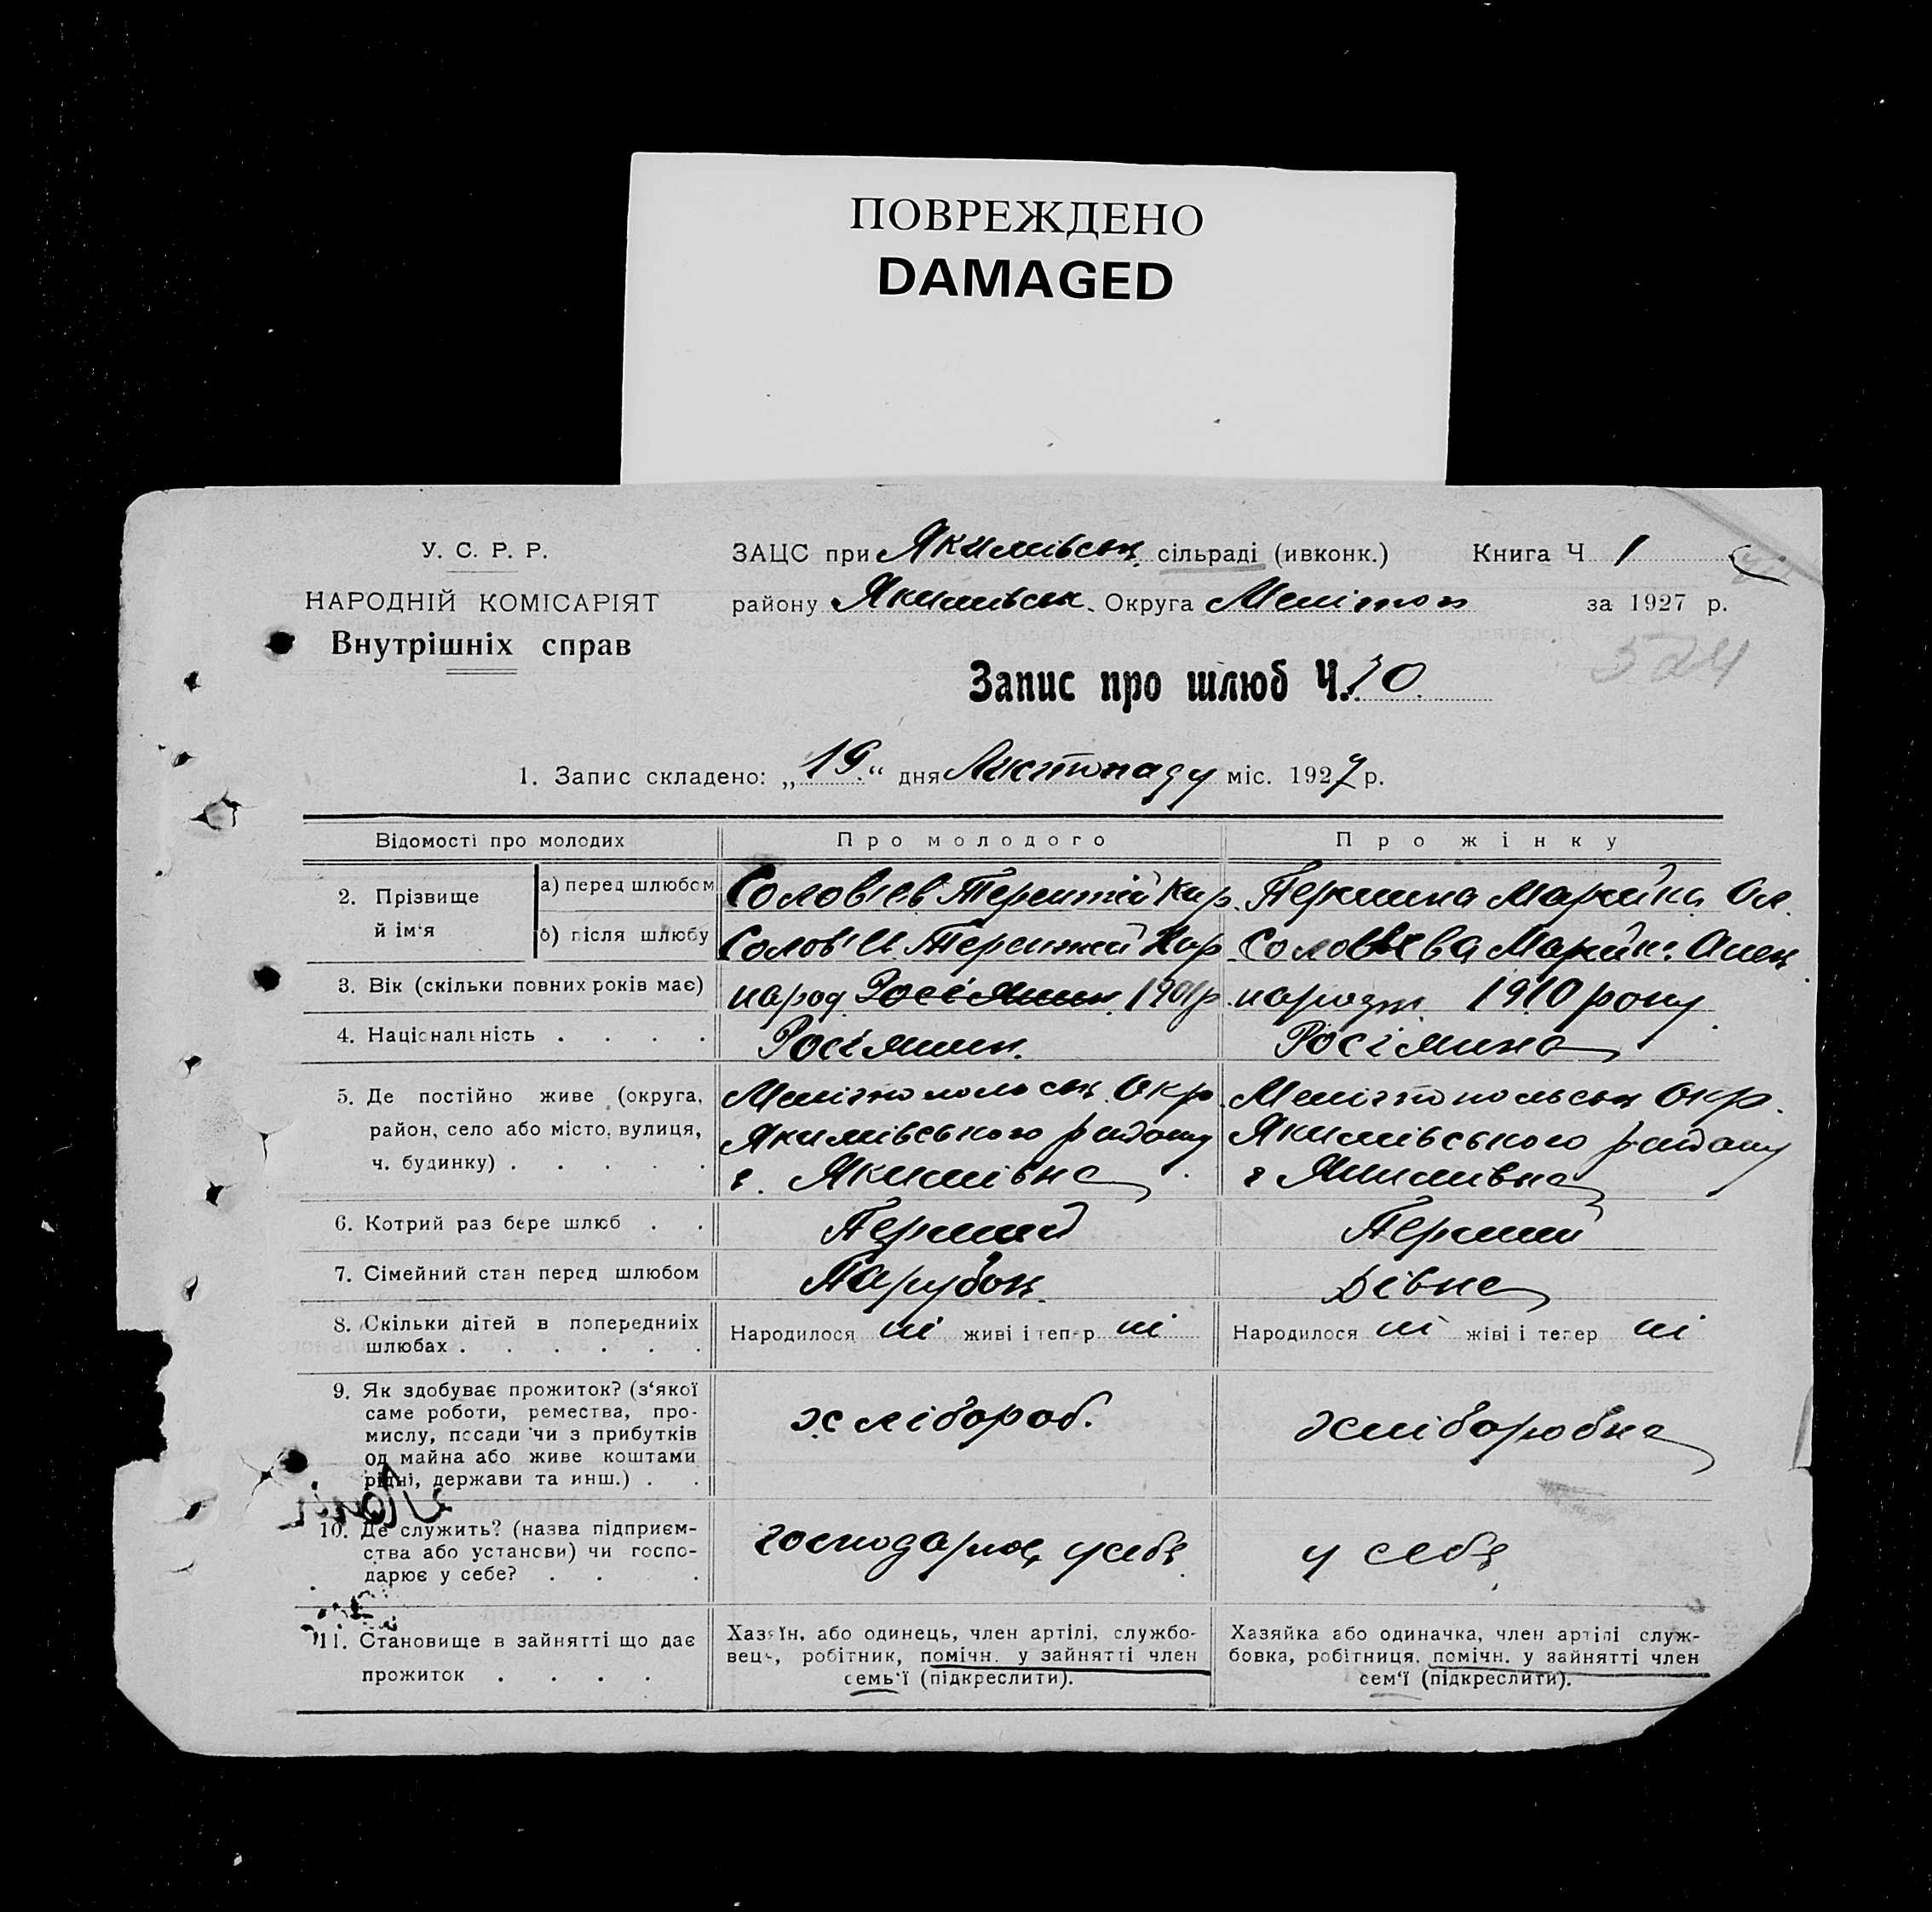 ПОВРЕЖДЕНО
DAMAGED
У. С. Р. Р.
НАРОДНІЙ КОМІСАРІЯТ
Внутрішніх справ
ЗАЦС при Якимівськ. сільраді (ивконк.) Книга Ч 1
району Якимівськ. Округа Мелітоп за 1927 р.
524
Запис про шлюб Ч. 70
1. Запис складено: „19“ дня Листопаду міс. 1927 р.
Відомості про молодих Про молодого Про жінку
2. Прізвище й ім'я
а) перед шлюбом Соловьев Терентій Кир. Першина Марийка Ол.
б) після шлюбу Солов'и Терентий Кир Соловьева Марийк. Олек.
3. Вік (скільки повних років має) народ. Росіянин 1901 р. народж. 1910 року
4. Національність . . . . Росіянин. Росіянина
5. Де постійно живе (округа, Мелітопольськ. Окр. Мелітопольськ Окр.
район, село або місто, вулиця, Якимівського району Якимівського району
ч. будинку) . . . . . с. Якимівка с Якимівка
6. Котрий раз бере шлюб . . Перший Перший
7. Сімейний стан перед шлюбом Парубок. Дівка
8. Скільки дітей в попередниіх Народилося ні живі і теп-р ні Народилося ні жіві і тепер ні
шлюбах . . . . . .
9. Як здобуває прожиток? (з'якої
саме роботи, ремества, про-
мислу, посади чи з прибутків
од майна або живе коштами
рідні, держави та инш.) . .
хлібороб. хліборобка
10. Де служить? (назва підприєм-
ства або установи) чи госпо-
дарює у себе? . . .
господарює у себе у себе
11. Становище в зайнятті що дає
прожиток . . . .
Хазяїн, або одинець, член артілі, службо-
вець, робітник, помічн. у зайнятті член
семь'ї (підкреслити).
Хазяйка або одиначка, член артілі служ-
бовка, робітниця, помічн. у зайнятті член
сем'ї (підкреслити).